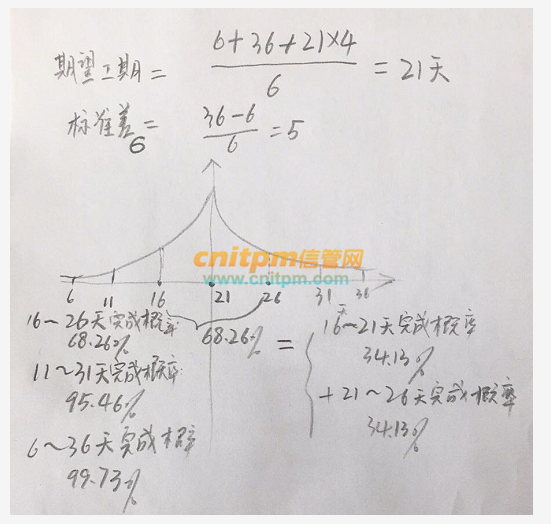 期望工期 = 6+36+21×4 / 6 = 21天
标准差 6 = 36-6 / 6 = 5
cnitpm信管网
www.cnitpm.com
6 11 16 21 26 31 36
16~26天完成概率
68.26%
11~31天完成概率
95.46%
6~36天完成概率
99.73%
68.26% =
16~21天完成概率
34.13%
+21~26天完成概率
34.13%